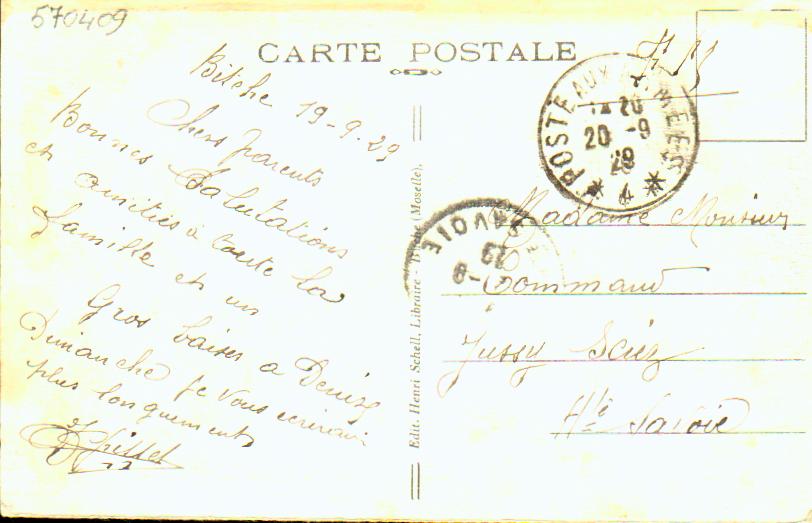 570409
CARTE POSTALE
F M
Bitche 19-9-29
Chers parents
Bonnes Salutations
et amitiés a toute la
famille et un
Gros baiser a Denise
Dimanche je vous écrirais
plus longuement
POSTE AUX ARMEES
20 -9
29
* 4 *
SAVOIE
Edit. Henri Schell, Libraire - Bitche (Moselle).
Madame Monsieur
Jussy Sciez
Hte Savoie